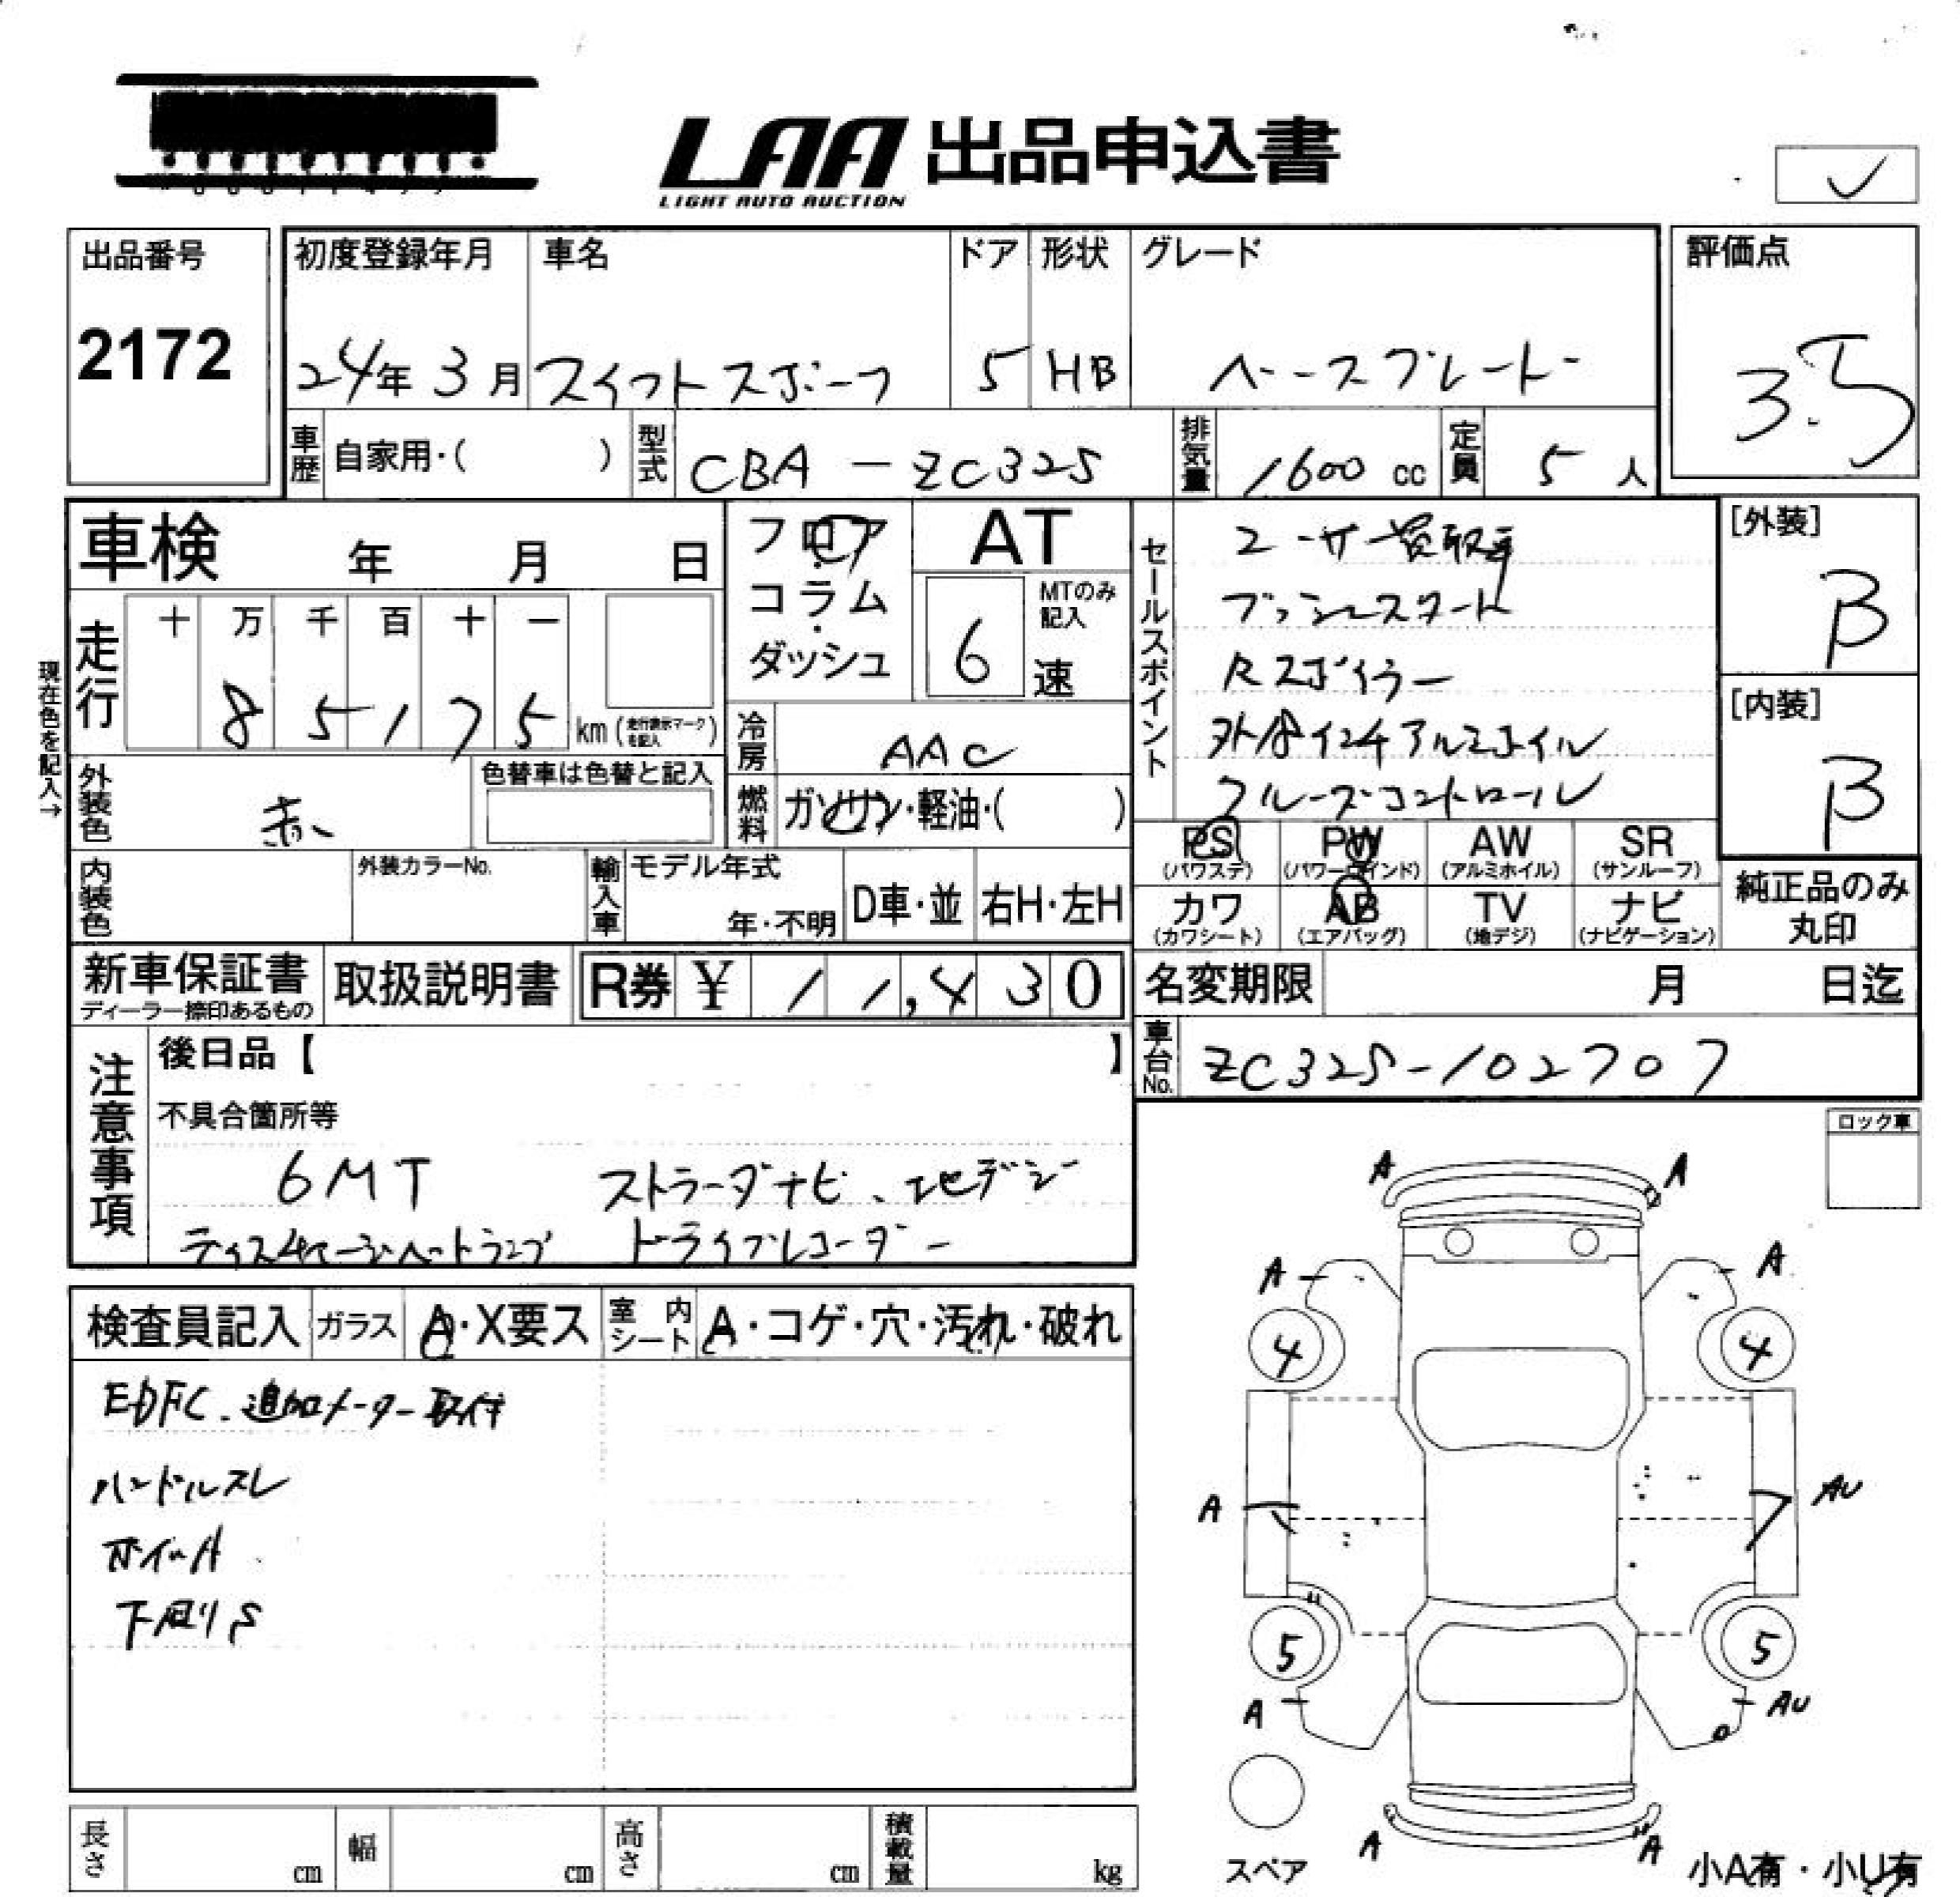 LAA 出品申込書
LIGHT AUTO AUCTION
出品番号
2172
初度登録年月
24年3月
車名
スイフトスポーツ
ドア
5
形状
HB
グレード
ベースグレード
評価点
3.5
車歴 自家用・( )
型式 CBA-ZC32S
排気量 1600 cc
定員 5 人
車検 年 月 日
走行 十 万 千 百 十 一
8 5 1 7 5 km (走行表示マークを記入)
現在色を記入→
外装色 赤
色替車は色替と記入
フロア
コラム
・
ダッシュ
AT
MTのみ記入
6 速
冷房 AAC
燃料 ガソリン・軽油・( )
セールスポイント
ユーザー買取車
プッシュスタート
Rスポイラー
社外18インチアルミホイル
クルーズコントロール
[外装]
B
[内装]
B
内装色
外装カラーNo.
輸入車
モデル年式
年・不明
D車・並
右H・左H
PS
(パワステ)
PW
(パワーウインド)
AW
(アルミホイル)
SR
(サンルーフ)
カワ
(カワシート)
AB
(エアバッグ)
TV
(地デジ)
ナビ
(ナビゲーション)
純正品のみ
丸印
新車保証書
ディーラー捺印あるもの
取扱説明書
R券 ¥ 11,430
名変期限 月 日迄
車台No. ZC32S-102707
注意事項
後日品【 】
不具合箇所等
6MT ストラーダナビ、地デジ
ディスチャージヘッドランプ ドライブレコーダー
ロック車
検査員記入
ガラス A・X要ス
室内シート A・コゲ・穴・汚れ・破れ
EDFC、追加メーター取付
ハンドルスレ
ホイールA
下回りS
A A
A A
4 4
A AU
5 5
A AU
A A
スペア
小A有・小U有
長さ cm
幅 cm
高さ cm
積載量 kg